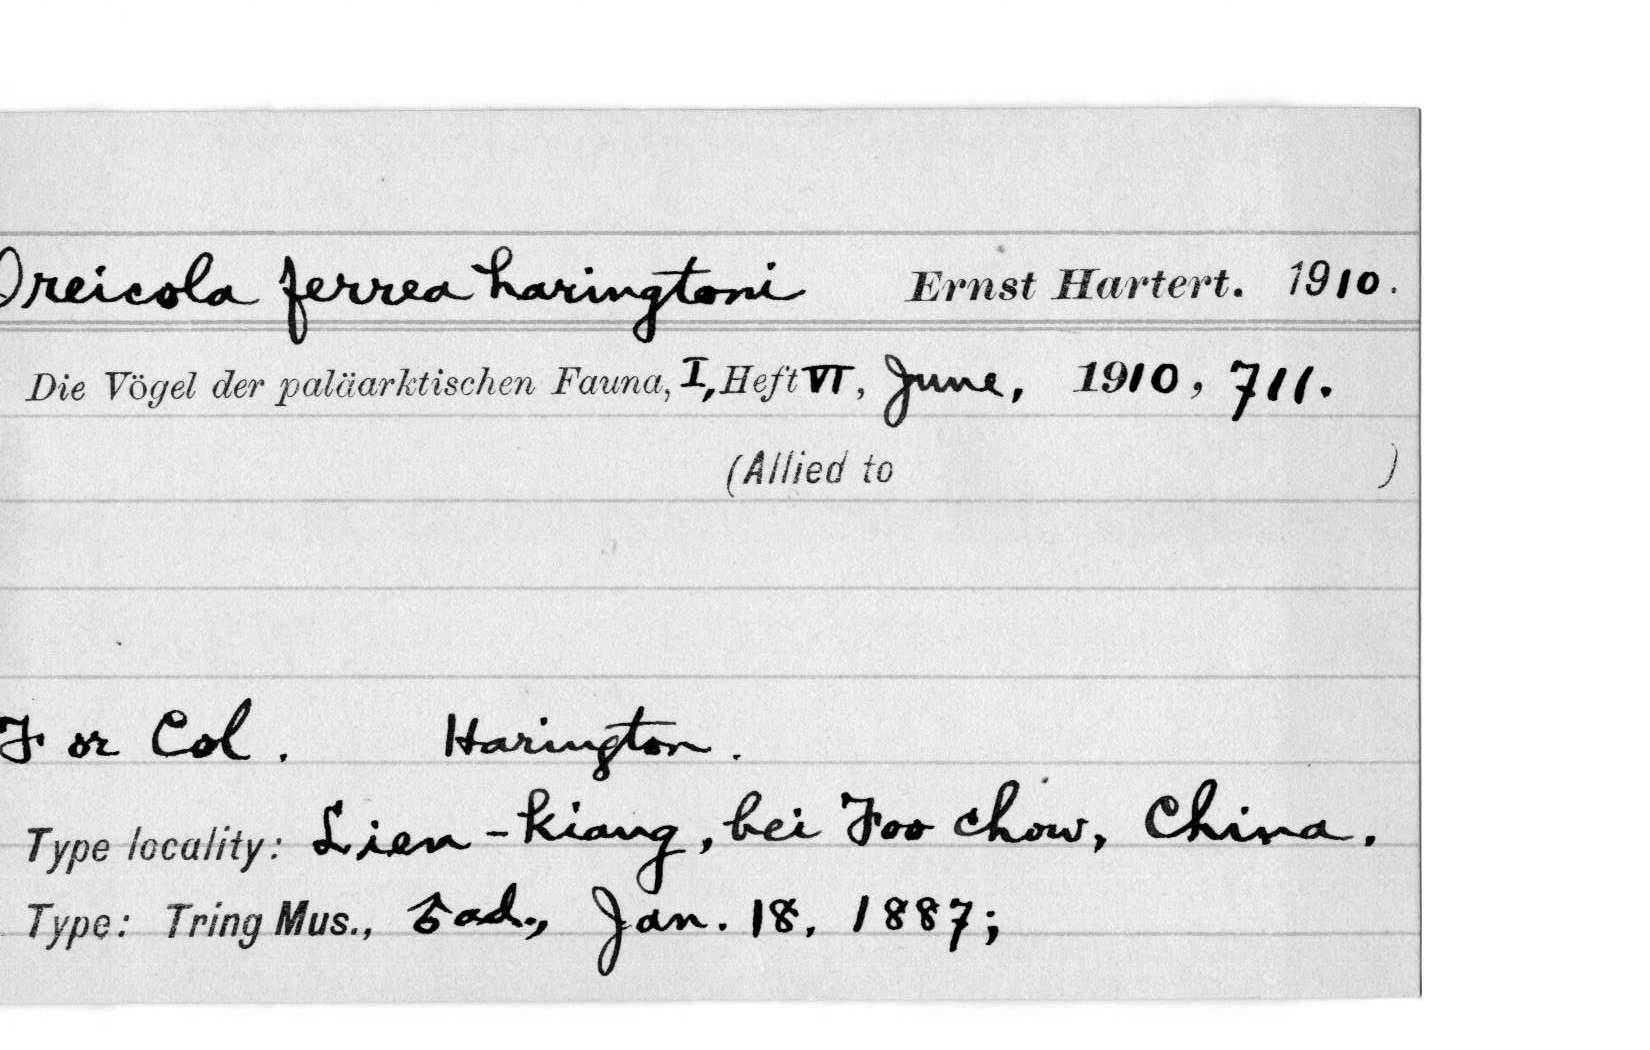 Oreicola ferrea haringtoni Ernst Hartert. 1910.
Die Vögel der paläarktischen Fauna, I, Heft VI, June, 1910, 711.
(Allied to )
For Col. Harington.
Type locality: Lien-kiang, bei Foochow, China.
Type: Tring Mus., ♂ ad., Jan. 18, 1887;